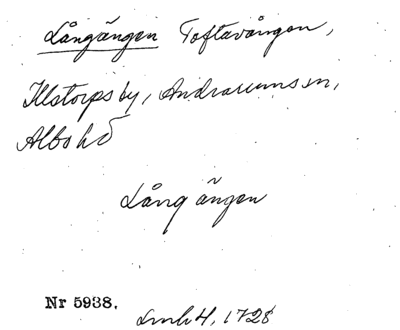 Långängen Toftavången,
Illstorps by, Andrarums sn,
Albo hd
Lång ängen
Nr 5938.
Lmh 4, 1728